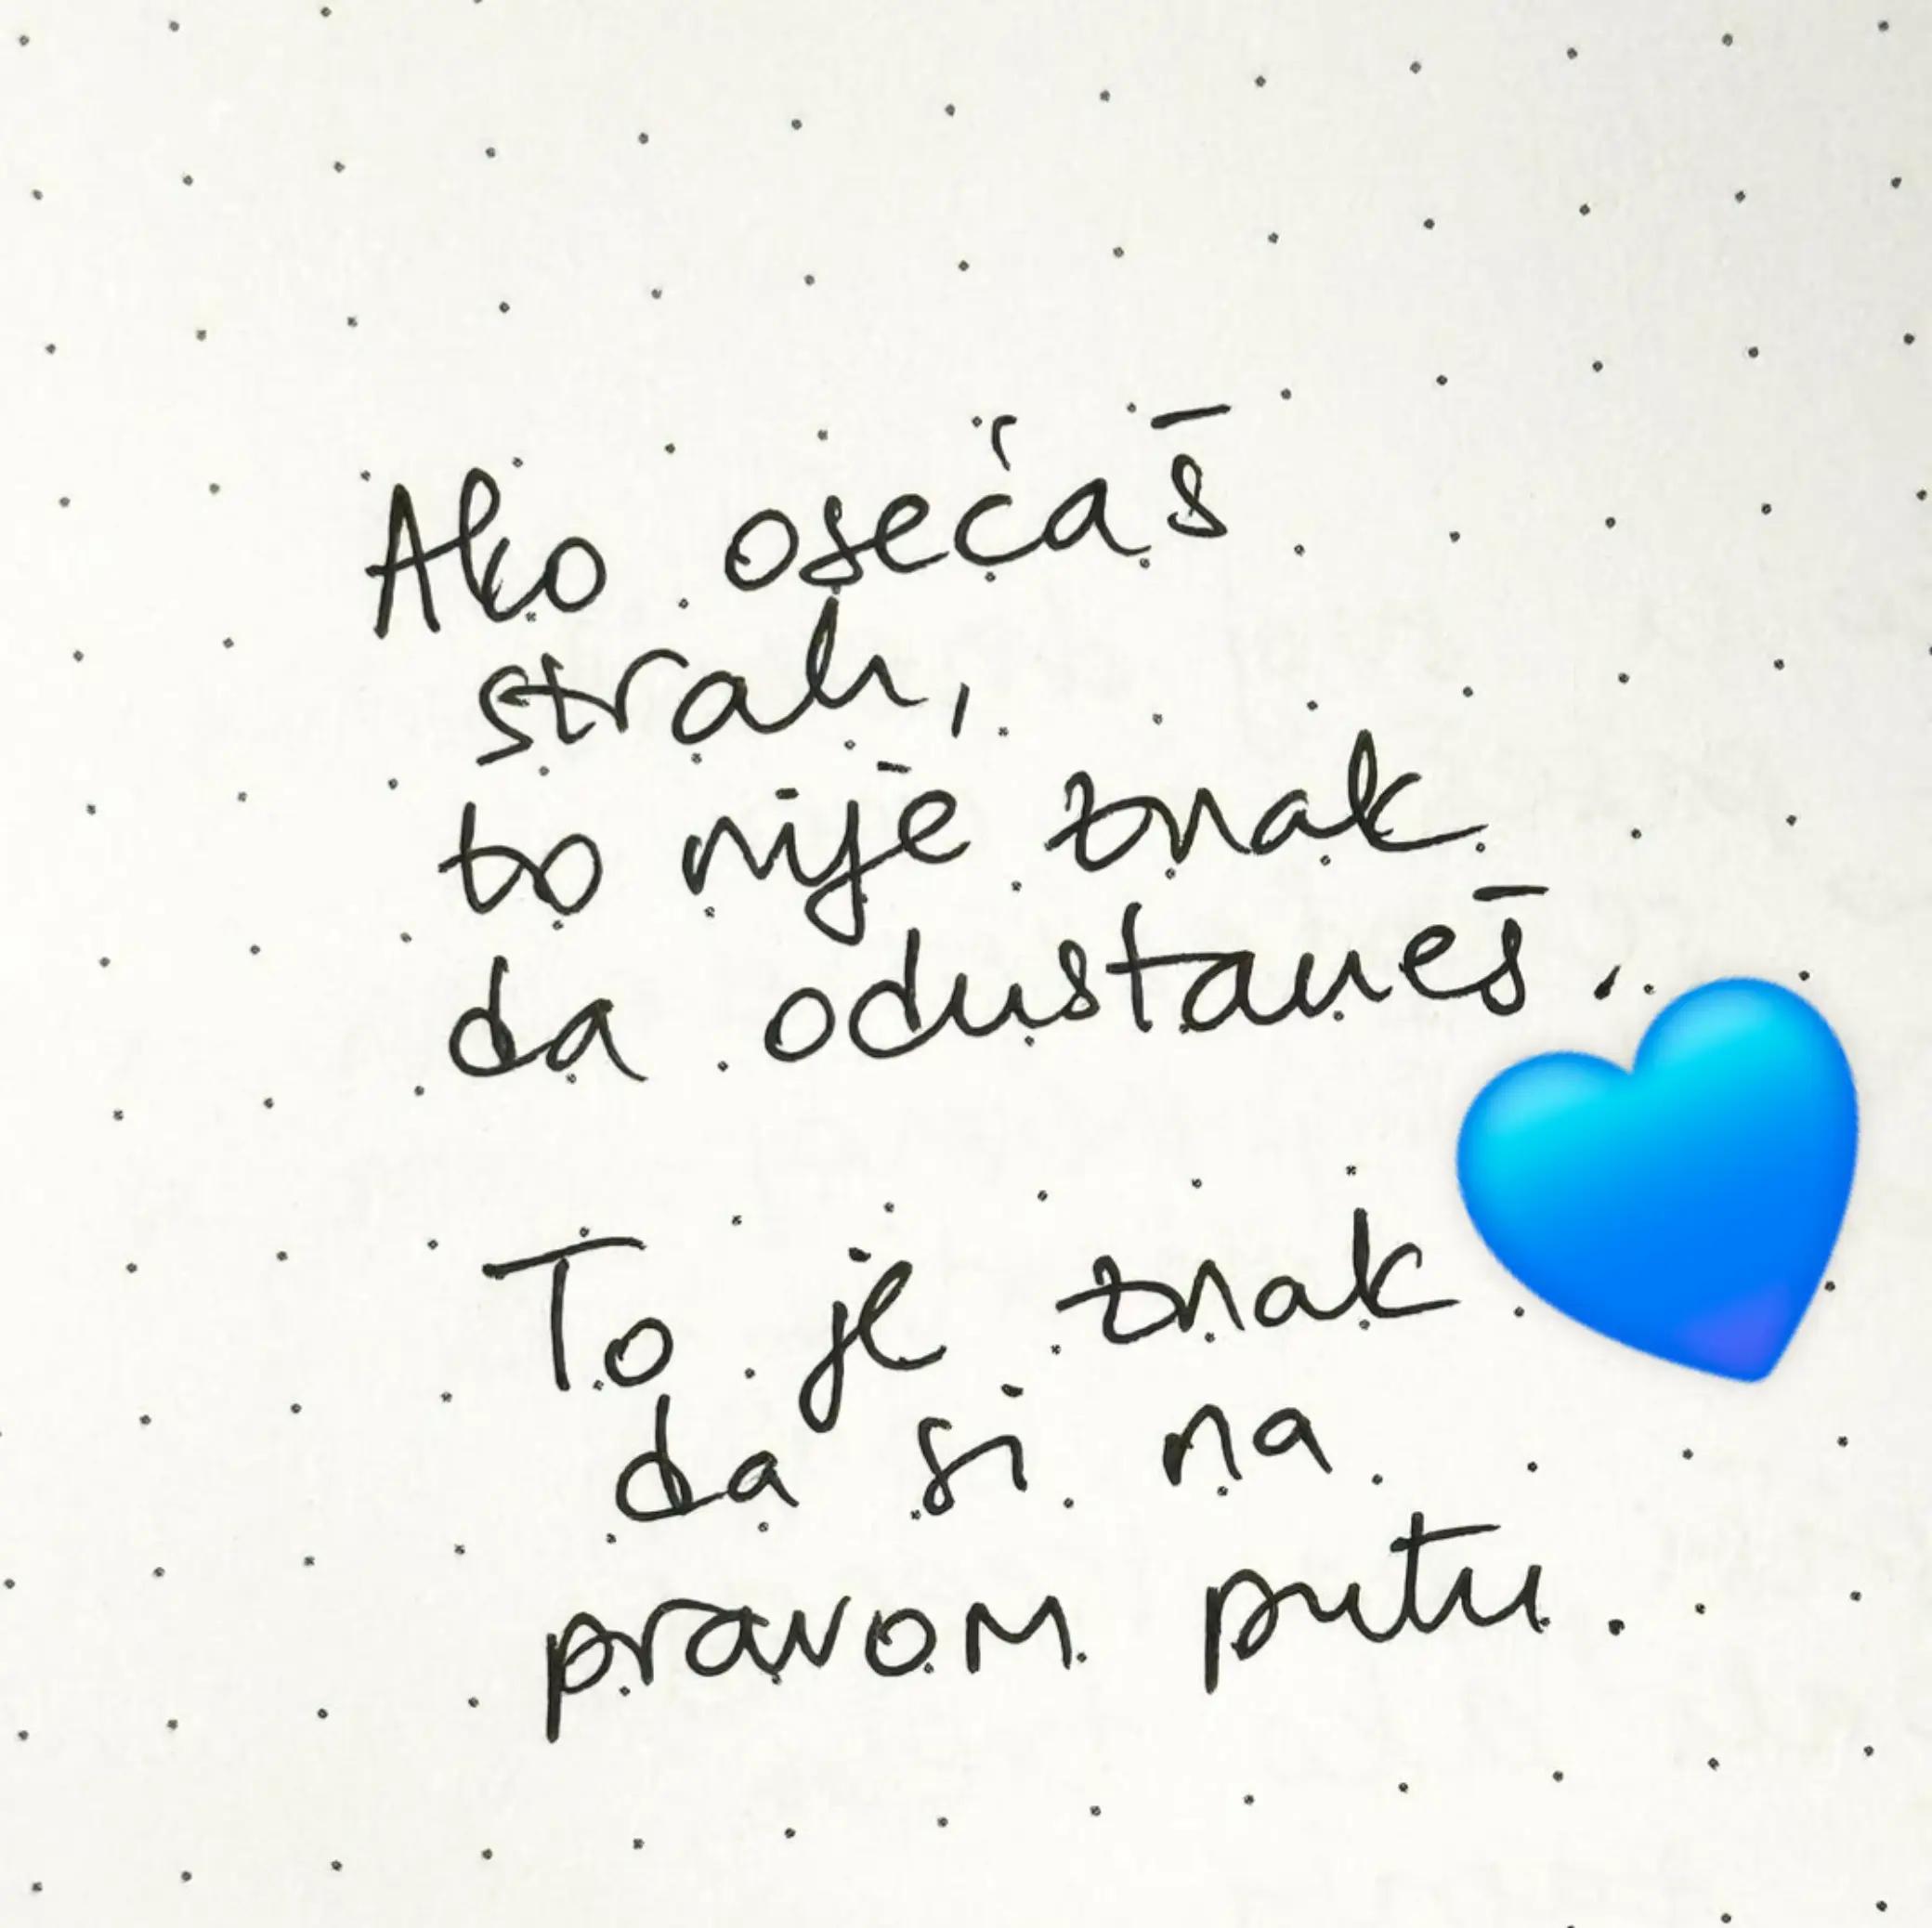 Ako osećaš
strah,
to nije znak
da odustaneš.
To je znak
da si na
pravom putu.